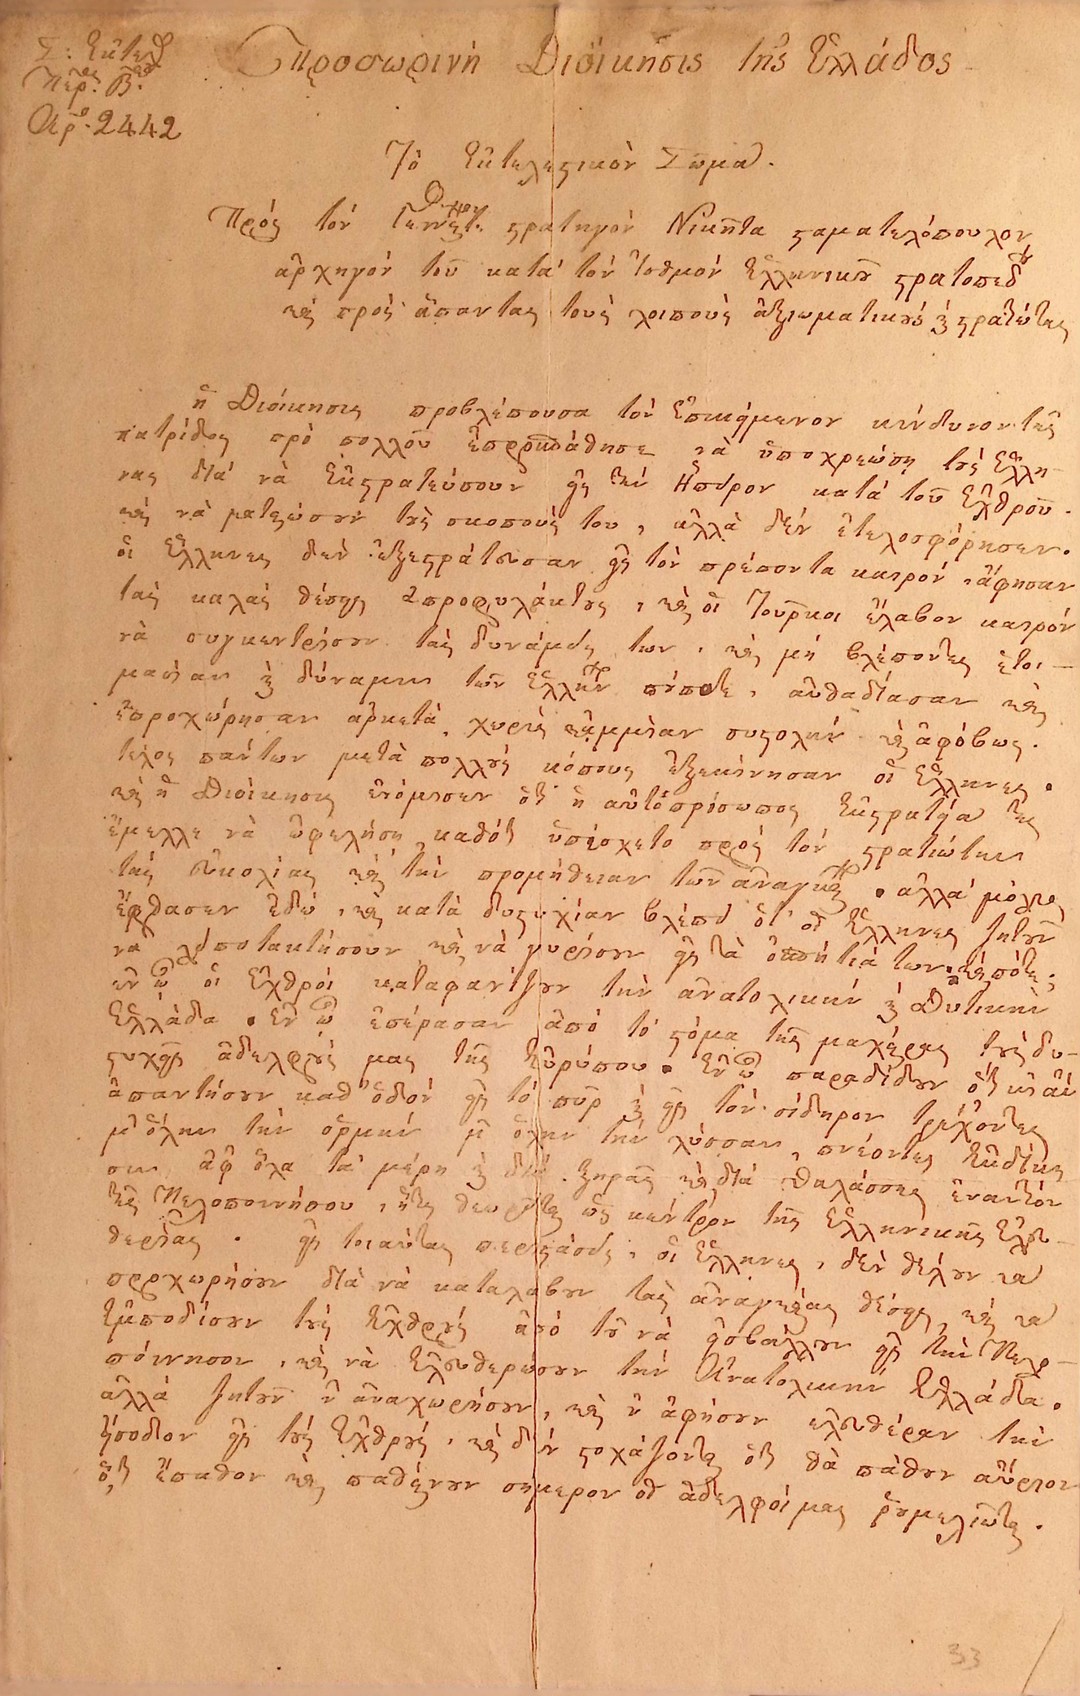 Σ: Ἐκτελ
Περ: Β:
Ἀρ: 2442
Προσωρινὴ Διοίκησις τῆς Ἑλλάδος
Τὸ Ἐκτελεστικὸν Σῶμα.
Πρὸς τὸν Γεννότ: στρατηγὸν Νικήτα σταματελόπουλον
ἀρχηγὸν τοῦ κατὰ τὸν Ἰσθμὸν Ἑλληνικοῦ στρατοπέδου
καὶ πρὸς ἅπαντας τοὺς λοιποὺς ἀξιωματικοὺς καὶ στρατιώτας
ἡ Διοίκησις προβλέπουσα τὸν ἐπικείμενον κίνδυνον τῆς
πατρίδος πρὸ πολλοῦ ἐπροσπάθησε νὰ ὑποχρεώσῃ τοὺς Ἕλλη-
νας διὰ νὰ ἐκστρατεύσουν εἰς τὴν Ἤπειρον κατὰ τοῦ Ἐχθροῦ.
καὶ νὰ ματαιώσουν τοὺς σκοποὺς του, ἀλλὰ δὲν ἐτελοσφόρησεν.
οἱ Ἕλληνες δὲν ἐξεστράτευσαν εἰς τὸν πρέποντα καιρὸν, ἄφησαν
τὰς καλὰς θέσεις ἀπροφυλάκτους, καὶ οἱ Τοῦρκοι ἔλαβον καιρὸν
νὰ συγκεντρώσουν τὰς δυνάμεις των, καὶ μὴ βλέποντες ἑτοι-
μασίαν καὶ δύναμιν τῶν Ἑλλήνων ποτὲ, αὐθαδίασαν καὶ
ἐπροχώρησαν ἀρκετὰ, χωρὶς κἀμμίαν συστολὴν καὶ ἀφόβως.
τέλος πάντων μετὰ πολλοὺς κόπους ἐξεκίνησαν οἱ Ἕλληνες.
καὶ ἡ Διοίκησις ἐνόμισεν ὅτι ἡ αὐτοπρόσωπος ἐκστρατεία της
ἔμελλε νὰ ὠφελήσῃ, καθότι ὑπέσχετο πρὸς τὸν στρατιώτην
τὰς εὐκολίας καὶ τὴν προμήθειαν τῶν ἀναγκαίων. ἀλλὰ μόλις
ἔφθασεν ἐδῶ, καὶ κατὰ δυστυχίαν βλέπει ὅτι οἱ Ἕλληνες ζητοῦν
νὰ λειποτακτήσουν καὶ νὰ γυρίσουν εἰς τὰ ὀσπήτιά των. καὶ πότε;
ἐν ᾧ οἱ Ἐχθροὶ καταφανίζουν τὴν ἀνατολικὴν καὶ Δυτικὴν
Ἑλλάδα. ἐν ᾧ ἐπέρασαν ἀπὸ τὸ στόμα τῆς μαχαίρας τοὺς δυ-
στυχεῖς ἀδελφούς μας τῆς Εὐρύπου. ἐν ᾧ παραδίδουν ὅ,τι κι ἂν
ἀπαντήσουν καθ᾽ ὁδὸν εἰς τὸ πῦρ καὶ εἰς τὸν σίδηρον τρέχοντες
μ᾽ ὅλην τὴν ὁρμὴν μ᾽ ὅλην τὴν λύσσαν, πνέοντες ἐκδίκη-
σιν ἀφ᾽ ὅλα τὰ μέρη καὶ διὰ ξηρᾶς καὶ διὰ θαλάσσης ἐναντίον
τῆς Πελοποννήσου, ἥτις θεωρεῖται ὡς κέντρον τῆς Ἑλληνικῆς Ἐλευ-
θερίας. εἰς τοιαύτας περιστάσεις, οἱ Ἕλληνες, δὲν θέλουν νὰ
προχωρήσουν διὰ νὰ καταλάβουν τὰς ἀναγκαίας θέσεις, καὶ νὰ
ἐμποδίσουν τοὺς Ἐχθροὺς ἀπὸ τοῦ νὰ εἰσβάλλουν εἰς τὴν Πελο-
πόννησον, καὶ νὰ Ἐλευθερώσουν τὴν Ἀνατολικὴν Ἑλλάδα.
ἀλλὰ ζητοῦν ν᾽ ἀναχωρήσουν, καὶ ν᾽ ἀφήσουν ἐλευθέραν τὴν
εἴσοδον εἰς τοὺς Ἐχθροὺς, καὶ δὲν στοχάζονται ὅτι θὰ πάθουν αὔριον
ὅ,τι ἔπαθον καὶ παθαίνουν σήμερον οἱ ἀδελφοί μας Ῥουμελιῶται.
33